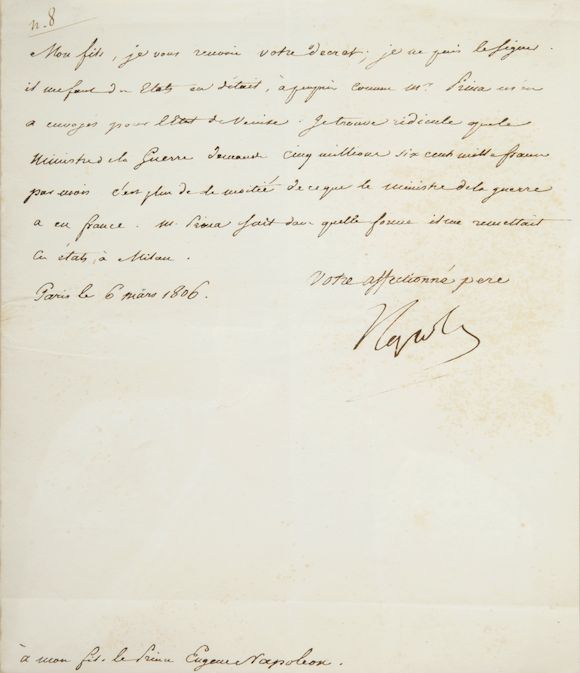 n. 8
Mon fils, je vous renvoie votre décret; je ne puis le signer.
il me faut des Etats en détail, à peuprès comme mr. Prina m'en
a envoyés pour l'Etat de Venise. Je trouve ridicule que le
Ministre de la Guerre demande cinq millions six cent mille francs
par mois c'est plus de la moitié de ce que le ministre de la guerre
a en france. m. Prina sait dans quelle forme il me remettait
ces états, à Milan.
Votre affectionné pere
Paris le 6 mars 1806.
Napole
à mon fils le Prince Eugene Napoleon.